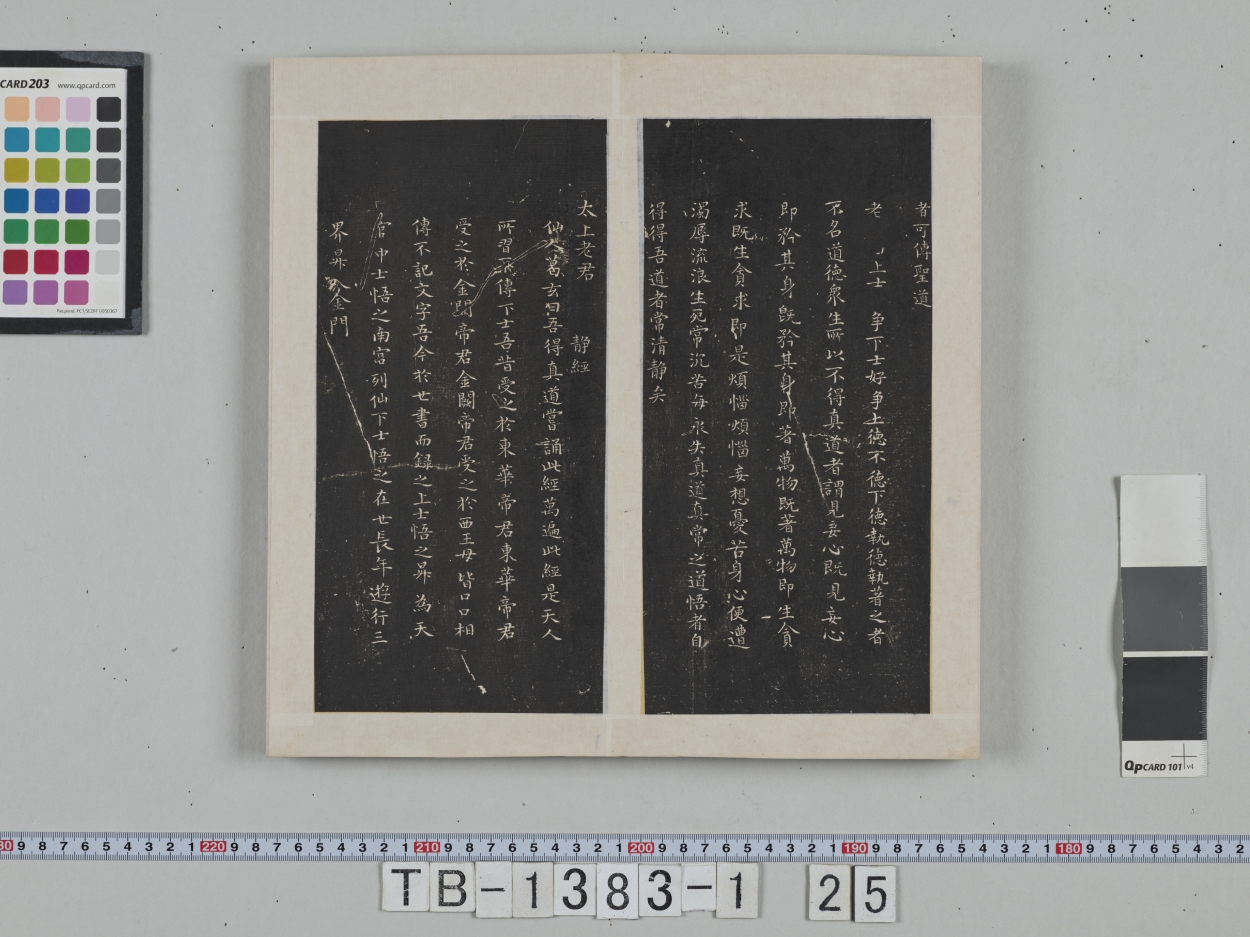 者可傳聖道
老 上士 争下士好争上德不德下德執德執著之者
不名道德衆生所以不得真道者謂見妄心既見妄心
即矜其身既矜其身即著萬物既著萬物即生貪
求既生貪求即是煩惱煩惱妄想憂苦身心便遭
濁辱流浪生死常沉苦每永失真道真常之道悟者自
得得吾道者常清靜矣
太上老君 靜經
仙人葛玄曰吾得真道嘗誦此經萬遍此經是天人
所習不傳下士吾昔受之於東華帝君東華帝君
受之於金闕帝君金闕帝君受之於西王母皆口口相
傳不記文字吾今於世書而録之上士悟之昇為天
官中士悟之南宫列仙下士悟之在世長年遊行三
界昇入金門
CARD 203 www.qpcard.com
QPCARD 101 v4
30 9 8 7 6 5 4 3 2 1 220 9 8 7 6 5 4 3 2 1 210 9 8 7 6 5 4 3 2 1 200 9 8 7 6 5 4 3 2 1 190 9 8 7 6 5 4 3 2 1 180 9 8 7 6 5 4 3 2
TB-1383-1 25